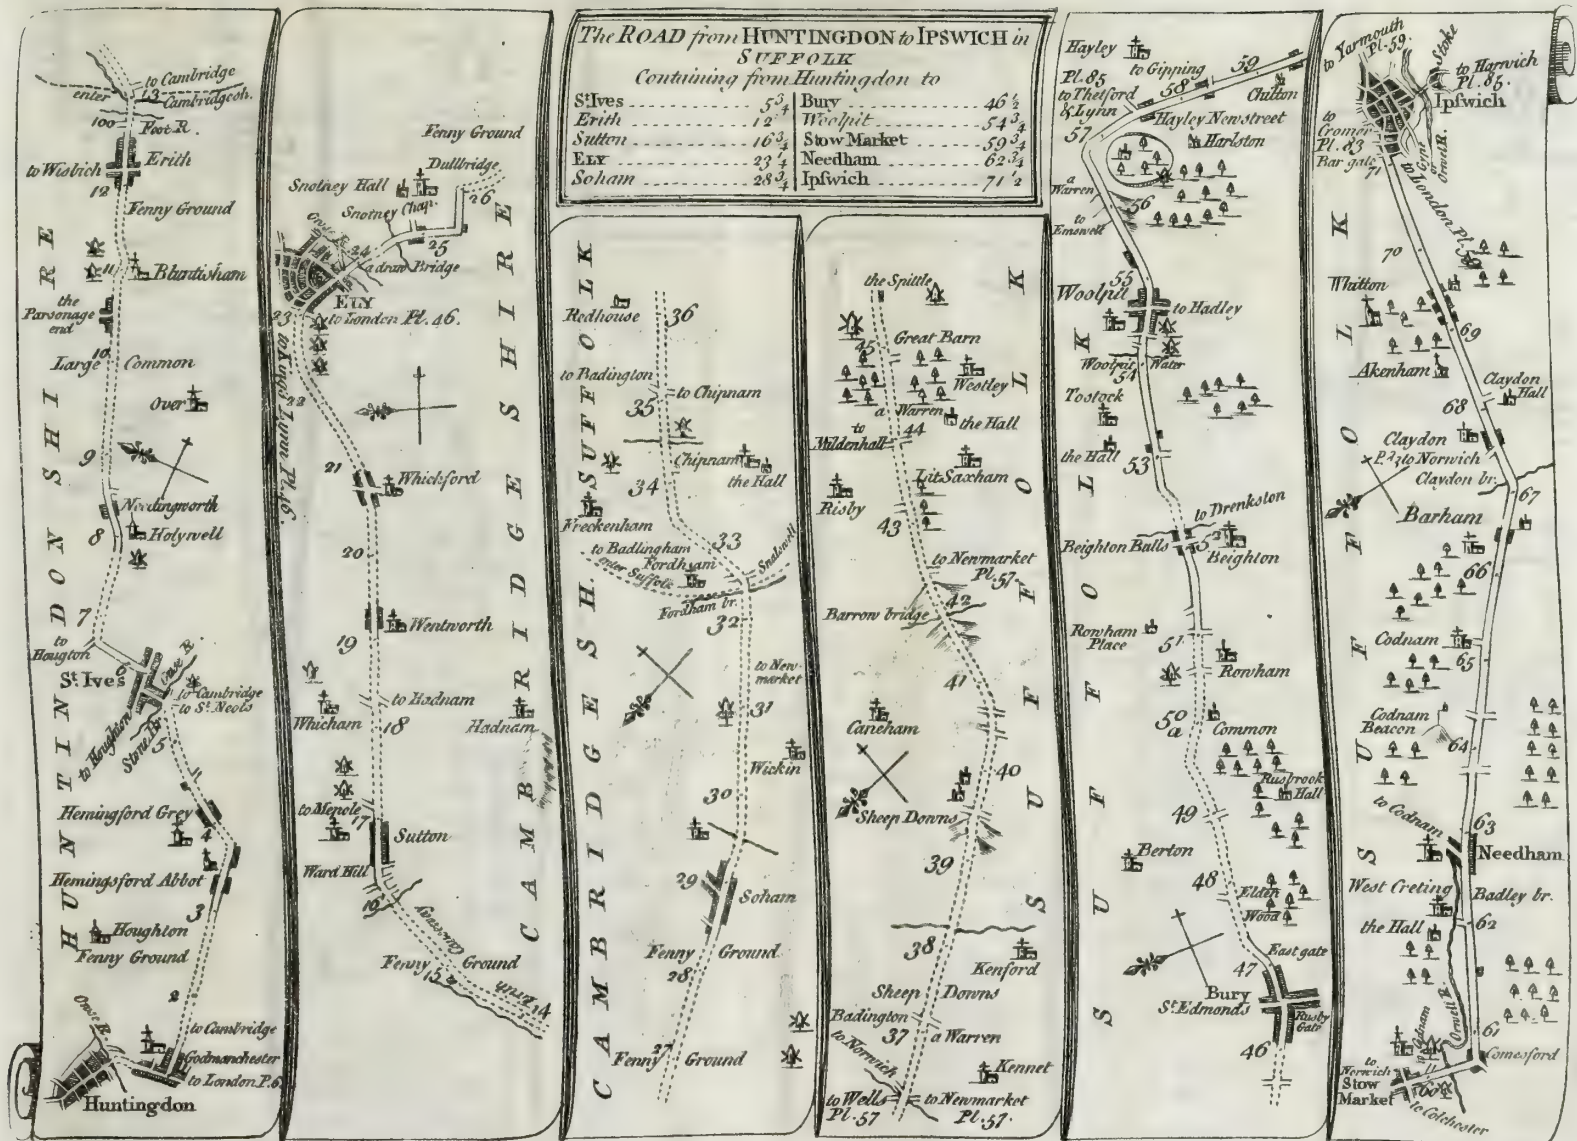 The ROAD from HUNTINGDON to IPSWICH in
SUFFOLK
Containing from Huntingdon to
St. Ives 5 3/4
Erith 12
Sutton 16 3/4
ELY 23 1/4
Soham 28 3/4
Bury 46 1/2
Woolpit 54 3/4
Stow Market 59 3/4
Needham 62 3/4
Ipswich 71 1/2
HUNTINDON SHIRE
to Cambridge
enter
13
Cambridgesh.
100
Foot R.
to Wisbich
Erith
12
Fenny Ground
11
Bluntisham
the
Parsonage
end
Large
10
Common
Over
9
Needingworth
8
Holywell
7
to
Hougton
6
Ouse R.
St. Ives
to Cambridge
to St. Neots
to Houghton
Stone Br.
5
Hemingford Grey
4
Hemingsford Abbot
3
Houghton
Fenny Ground
2
Ouse R.
to Cambridge
Godmanchester
to London P.6
Huntingdon
CAMBRIDGE SHIRE
Fenny Ground
Dullbridge
Snotney Hall
26
Snotney Chap.
Grose R.
24
25
a draw Bridge
ELY
23
to London Pl.46.
to Kings Lynn Pl.46.
22
21
Whickford
20
Wentworth
19
to Hadnam
Whicham
18
Hadnam
to Menole
17
Sutton
Ward Hill
16
Causeway
Fenny
15
Ground
Erith
14
CAMBRIDGE SH.
SUFFOLK
Redhouse
36
to Badington
to Chipnam
35
Chipnam
the Hall
34
Freckenham
33
to Badlingham
Fordham
enter Suffolk
Snalswell
Fordham br.
32
to New-
market
31
Wickin
30
29
Soham
Fenny
Ground
28
Fenny
27
Ground
SUFFOLK
the Spittle
45
Great Barn
Westley
a Warren
to
Mildenhall
44
the Hall
Lit Saxham
Risby
43
to Newmarket
Pl.57.
Barrow bridge
42
41
Caneham
40
Sheep Downs
39
38
Kenford
Sheep
Downs
Badington
37
a Warren
to Norwich
Kennet
to Wells
Pl.57
to Newmarket
Pl.57.
SUFFOLK
Hayley
Pl.85
to Gipping
59
to Thetford
& Lynn
58
Chilton
57
Hayley Newstreet
Harlston
a
Warren
56
to
Emswell
55
Woolpit
to Hadley
Woolpit
Water
54
Tostock
the Hall
53
to Drenkston
Beighton Bulls
52
Beighton
Rowham
Place
51
Rowham
50
a
Common
Rusbrook
Hall
49
Berton
48
Elden
Wood
East gate
47
Bury
St. Edmonds
Rusby
Gate
46
SUFFOLK
to Yarmouth
Pl.59.
Stoke
to Harwich
Pl.85.
Ipswich
to
Cromer
Pl.83
Bar gate
71
Orwell R.
to London Pl.59
70
Whitton
69
Akenham
Claydon
Hall
68
Claydon
to Norwich
Claydon br.
67
Barham
66
Codnam
65
Codnam
Beacon
64
to Codnam
63
Needham
West Creting
Badley br.
the Hall
62
Orwell R.
61
Comesford
to
Norwich
Stow
Market
60
to Colchester